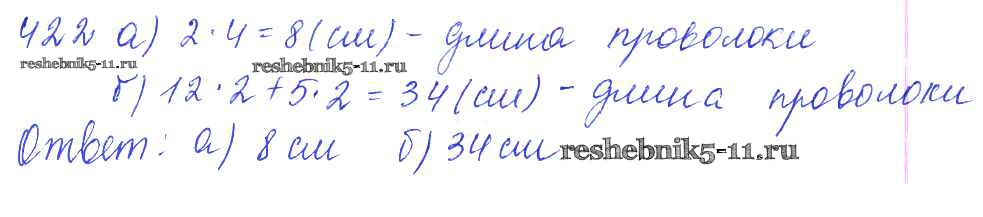 422 а) 2·4=8(см) - длина проволоки
reshebnik5-11.ru reshebnik5-11.ru
б) 12·2+5·2=34(см) - длина проволоки
Ответ: а) 8 см б) 34 см reshebnik5-11.ru